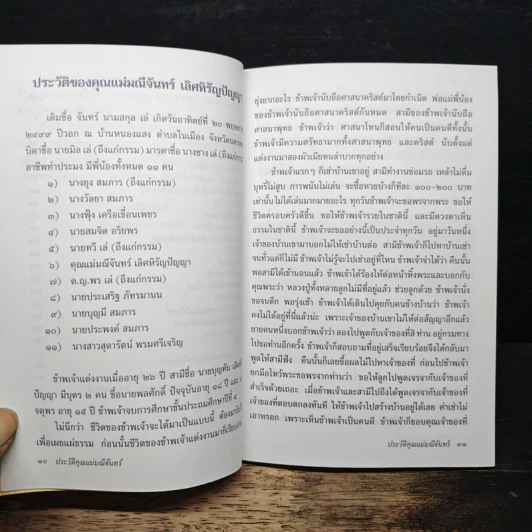 ประวัติของคุณแม่มณีจันทร์ เลิศหิรัญปัญญา
เดิมชื่อ จันทร์ นามสกุล เล่ เกิดวันอาทิตย์ที่ ๒๐
๒๔๙๙ ปีวอก ณ บ้านหนองแสง ตำบลในเมือง จังหวัด
บิดาชื่อ นายมิล เล่ (ถึงแก่กรรม) มารดาชื่อ นางซาง เล่ (ถึงแก่กรรม)
อาชีพทำประมง มีพี่น้องทั้งหมด ๑๑ คน
๑) นางยุง สมภาร (ถึงแก่กรรม)
๒) นางวัลยา สมภาร
๓) นางฟุ้ง เครือเชื่อนเพชร
๔) นายสมจิต อริยพร
๕) นายทวี เล่ (ถึงแก่กรรม)
๖) คุณแม่มณีจันทร์ เลิศหิรัญปัญญา
๗) ด.ญ.พร เล่ (ถึงแก่กรรม)
๘) นายประเสริฐ ภัทรมานน
๙) นายบุญมี สมภาร
๑๐) นายประพงค์ สมภาร
๑๑) นางสาวสุดารัตน์ พรมศรีเจริญ
ข้าพเจ้าแต่งงานเมื่ออายุ ๒๖ ปี สามีชื่อ นายบุญทัน
ปัญญา มีบุตร ๒ คน ชื่อนายพลศักดิ์ ปัจจุบันอายุ ๑๘ ปี และ
จตุพร อายุ ๑๕ ปี ข้าพเจ้าจบการศึกษาชั้นประถมศึกษาปีที่ ๔
ไม่นึกว่า ชีวิตของข้าพเจ้าจะได้มาเป็นแบบนี้
เพื่อเผยแผ่ธรรม ก่อนนั้นชีวิตของข้าพเจ้าแต่งงานมาก็
๑๐ ประวัติคุณแม่มณีจันทร์
ยุ่งยากอะไร ข้าพเจ้านับถือศาสนาคริสต์มาโดยกำเนิด พ่อแม่พี่น้อง
ของข้าพเจ้านับถือศาสนาคริสต์กันหมด สามีของข้าพเจ้านับถือ
ศาสนาพุทธ ข้าพเจ้าว่า ศาสนาไหนก็สอนให้คนเป็นคนดีทั้งนั้น
ข้าพเจ้ามีความศรัทธามากทั้งศาสนาพุทธ และคริสต์ นับตั้งแต่
แต่งงานมาสองผัวเมียทนลำบากทุกอย่าง
ข้าพเจ้าแรกๆ ก็เช่าบ้านเขาอยู่ สามีทำงานซ่อมรถ เหล้าไม่ดื่ม
บุหรี่ไม่สูบ การพนันไม่เล่น จะซื้อหวยบ้างก็ทีละ ๑๐๐-๒๐๐ บาท
เท่านั้นไม่ได้เล่นมากมายอะไร ทุกวันข้าพเจ้าจะขอพรจากพระ ขอให้
ชีวิตครอบครัวดีขึ้น ขอให้ข้าพเจ้ารวยในชาตินี้ และมีดวงตาเห็น
ธรรมในชาตินี้ ข้าพเจ้าจะขออย่างนี้เป็นประจำทุกวัน อยู่มาวันหนึ่ง
เจ้าของบ้านเขามาบอกไม่ให้เช่าบ้านต่อ สามีข้าพเจ้าก็ไปหาบ้านเช่า
จนทั่วแต่ก็ไม่มี ข้าพเจ้าไม่รู้จะไปเช่าอยู่ที่ไหน ข้าพเจ้าจำได้ว่า คืนนั้น
พอสามีได้เข้านอนแล้ว ข้าพเจ้าได้ร้องไห้ต่อหน้าหิ้งพระและบอกกับ
คุณพระว่า หลวงปู่ทั้งหลายลูกไม่มีที่อยู่แล้ว ช่วยลูกด้วย ข้าพเจ้านั่ง
ขอจนดึก พอรุ่งเช้า ข้าพเจ้าได้เดินไปคุยกับคนข้างบ้านว่า ข้าพเจ้า
คงไม่ได้อยู่ที่นี่แล้วน่ะ เพราะเจ้าของบ้านเขาไม่ให้ต่อสัญญาอีกแล้ว
ยายคนหนึ่งบอกข้าพเจ้าว่า ลองไปพูดกับเจ้าของที่สิ ท่าน อยู่กรมทาง
ไปขอท่านอีกครั้ง ข้าพเจ้าก็สอบถามที่อยู่เสร็จเรียบร้อยจึงได้กลับมา
พูดให้สามีฟัง คืนนั้นก็เลยซื้อผลไม้ไปหาเจ้าของที่ ก่อนไปข้าพเจ้า
ยกมือไหว้พระขอพรจากท่านว่า ขอให้ลูกไปพูดเจรจากับเจ้าของที่
สำเร็จด้วยเถอะ เมื่อข้าพเจ้าและสามีไปถึงได้พูดเจรจากับเจ้าของที่
เจ้าของที่ตอบตกลงทันที ให้ข้าพเจ้าไปสร้างบ้านอยู่ได้เลย ค่าเช่าไม่
เอาหรอก เพราะเห็นข้าพเจ้าเป็นคนดี ข้าพเจ้าก็ขอบคุณเจ้าของที่
ประวัติคุณแม่มณีจันทร์ ๑๑